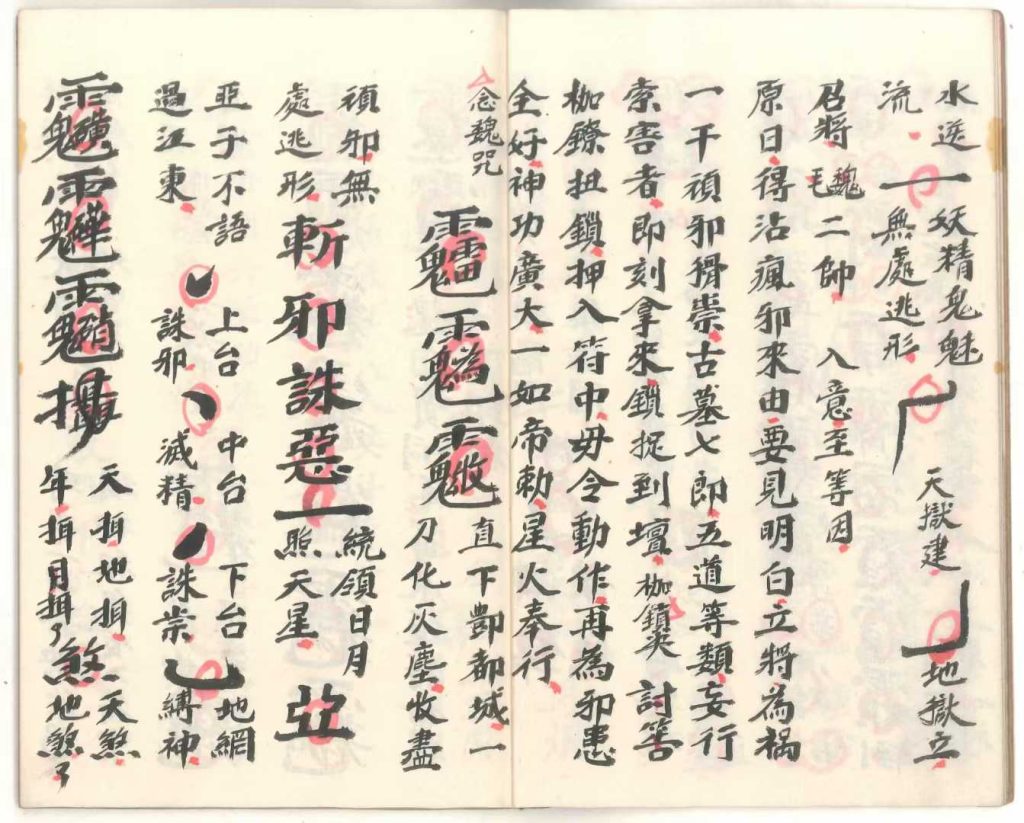 水送流
妖精鬼魅無處逃形
天獄建
地獄立
召將魏毛二帥 入意至等因
原日得沾瘋邪來由要見明白立將為禍
一干頑邪猾祟古墓七郎五道等類妄行
索害者即刻拿來鎖捉到壇枷鎖夾 討筶
枷鐐扭鎖押入符中毋令動作再為邪患
全好神功廣大一如帝勅星火奉行
念魏咒
直下酆都城一刀化灰塵收盡
頑邪無處逃形 斬邪誅惡 統領日月照天星 亞
亞子不語過江東
上台誅邪
中台滅精
下台誅祟
地網縛神
攝 天拑地拑年拑月拑 煞 天煞地煞